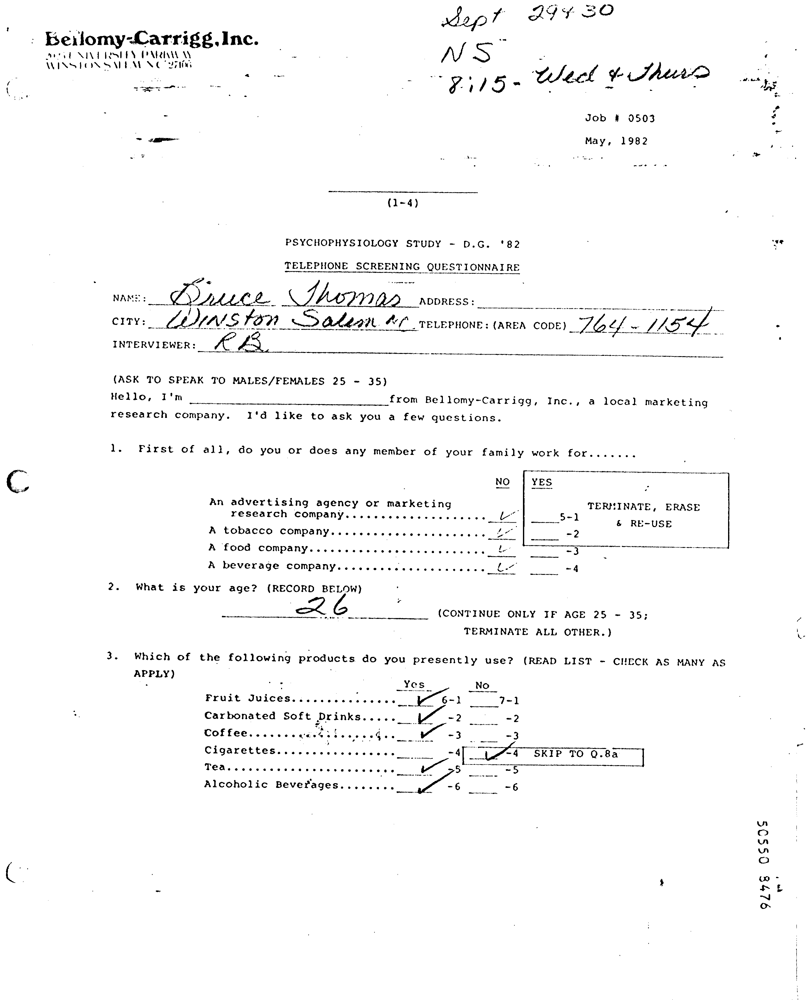 Sept 29 & 30
Bellomy-Carrigg, Inc.
NS
WINSTON SALEM NC 27106
8:15 - Wed & Thurs
Job # 0503
May, 1982
(1-4)
PSYCHOPHYSIOLOGY STUDY - D.G. '82
TELEPHONE SCREENING QUESTIONNAIRE
NAME: Bruce Thomas ADDRESS:
CITY: Winston Salem NC TELEPHONE: (AREA CODE) 764-1154
INTERVIEWER: RB
(ASK TO SPEAK TO MALES/FEMALES 25 - 35)
Hello, I'm ____ from Bellomy-Carrigg, Inc., a local marketing
research company. I'd like to ask you a few questions.
1. First of all, do you or does any member of your family work for.......
NO YES
An advertising agency or marketing TERMINATE, ERASE
research company.................... ✓ ___5-1 & RE-USE
A tobacco company...................... ✓ ___ -2
A food company......................... ✓ ___ -3
A beverage company..................... ✓ ___ -4
2. What is your age? (RECORD BELOW)
26 (CONTINUE ONLY IF AGE 25 - 35;
TERMINATE ALL OTHER.)
3. Which of the following products do you presently use? (READ LIST - CHECK AS MANY AS
APPLY)
Yes No
Fruit Juices............... ✓ 6-1 ___7-1
Carbonated Soft Drinks..... ✓ -2 ___ -2
Coffee..................... ✓ -3 ___ -3
Cigarettes................. ___ -4 ✓ -4 SKIP TO Q.8a
Tea........................ ✓ -5 ___ -5
Alcoholic Beverages........ ✓ -6 ___ -6
50550 8476